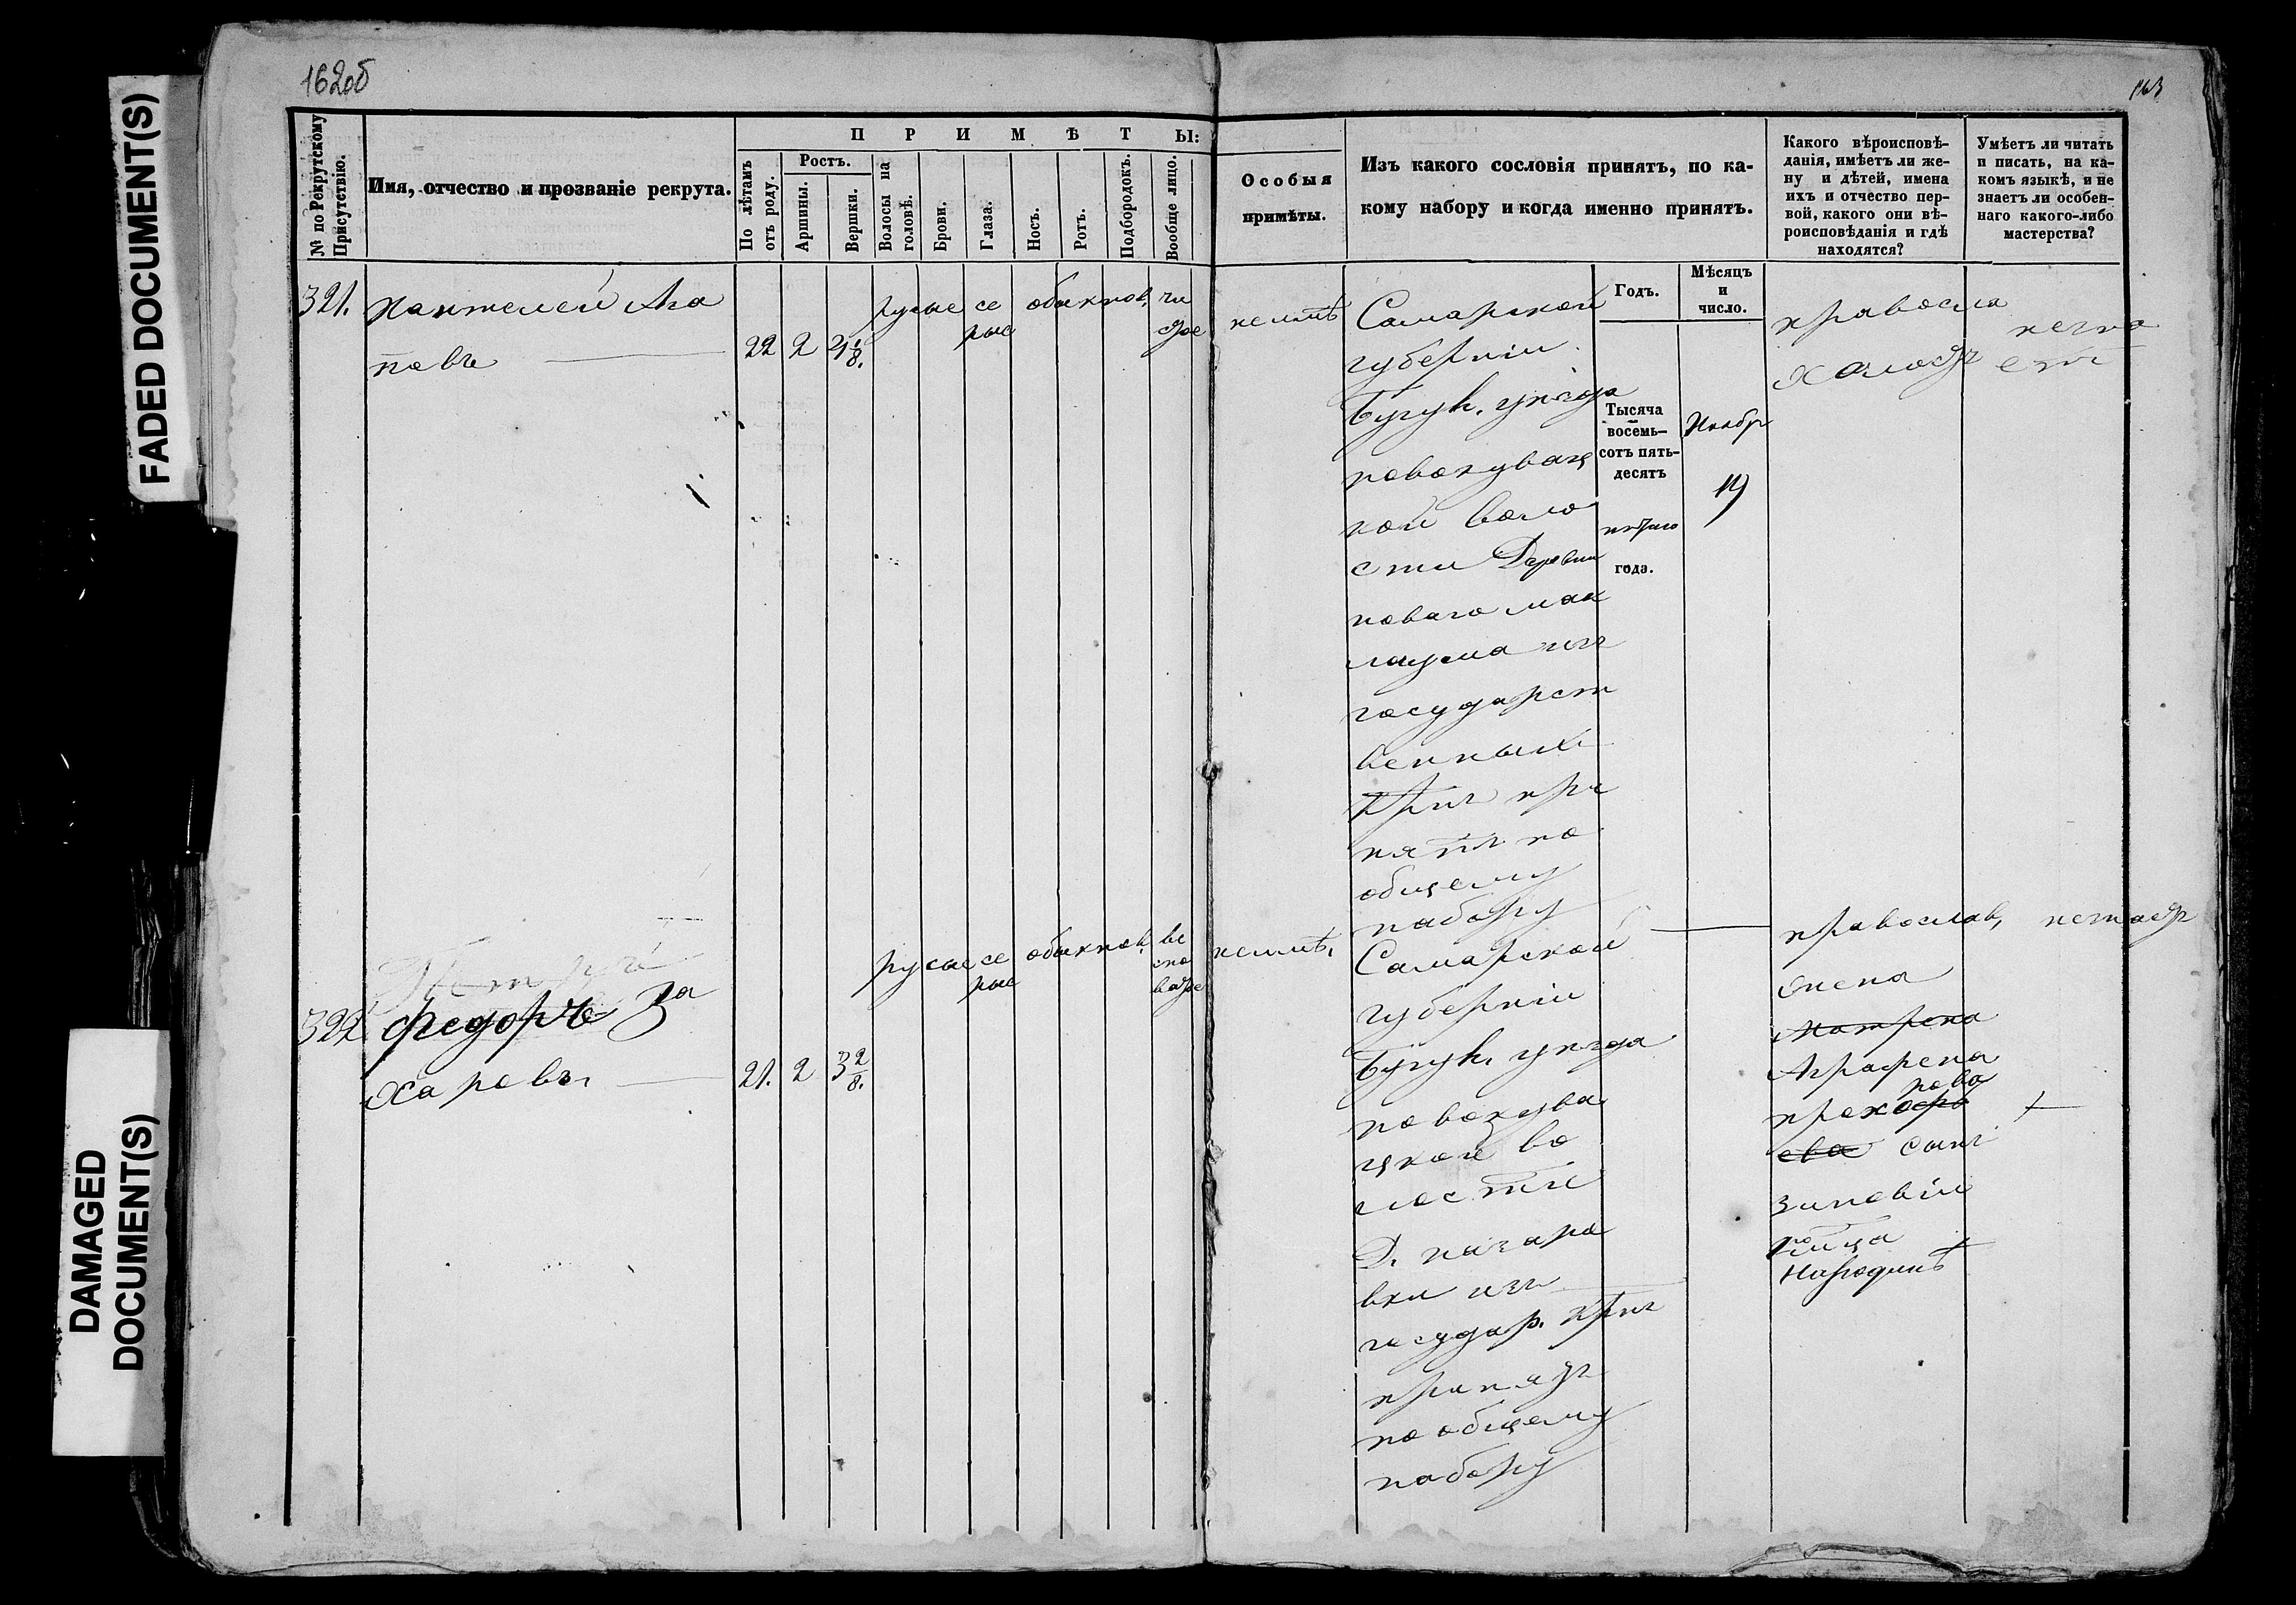 162об
163
FADED DOCUMENT(S)
DAMAGED
DOCUMENT(S)
№ по Рекрутскому
Присутствію.
Имя, отчество и прозваніе рекрута.
ПРИМѢТЫ:
По лѣтамъ
отъ роду.
Ростъ.
Аршины.
Вершки.
Волосы на
головѣ.
Брови.
Глаза.
Носъ.
Ротъ.
Подбородокъ.
Вообще лицо.
Особыя
примѣты.
Изъ какого сословія принятъ, по ка-
кому набору и когда именно принятъ.
Какого вѣроисповѣ-
данія, имѣетъ ли же-
ну и дѣтей, имена
ихъ и отчество пер-
вой, какого они вѣ-
роисповѣданія и гдѣ
находятся?
Умѣетъ ли читать
и писать, на ка-
комъ языкѣ, и не
знаетъ ли особен-
наго какого-либо
мастерства?
Годъ.
Мѣсяцъ
и
число.
321.
Пантелей Ага
повъ
22 2 2 1/8.
русые
се
рые
обыкнов.
чи
стое
неимѣ
Самарской
губерніи
Бугул. уѣзда
новокувац
кой воло
сти Деревни
новаго мак
лауша изъ
государст
венныхъ
крнъ при
нятъ по
общему
набору
Тысяча
восемь-
сотъ пять-
десятъ
пятаго
года.
Ноябр
19
православ
холостъ
незна
етъ
322.
Федоръ За
харовъ
21. 2 3 2/8.
русые
се
рые
обыкнов.
ве
сно
ватое
неимѣ,
Самарской
губерніи
Бугул. уѣзда
новокува
цкой во
лости
Д. назаро
вки изъ
государ. крнъ
принятъ
по общему
набору
православ,
жена
Матрена
Аграфена
нова
сынъ
зиновій
на родинѣ